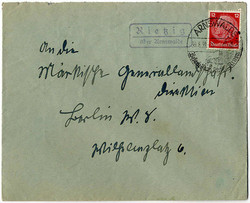 Rietzig
über Arnswalde
ARNSWALDE
12
Deutsches Reich
An die
Märkische Generallandschafts-
direktion
Berlin W. 8.
Wilhelmplatz 6.